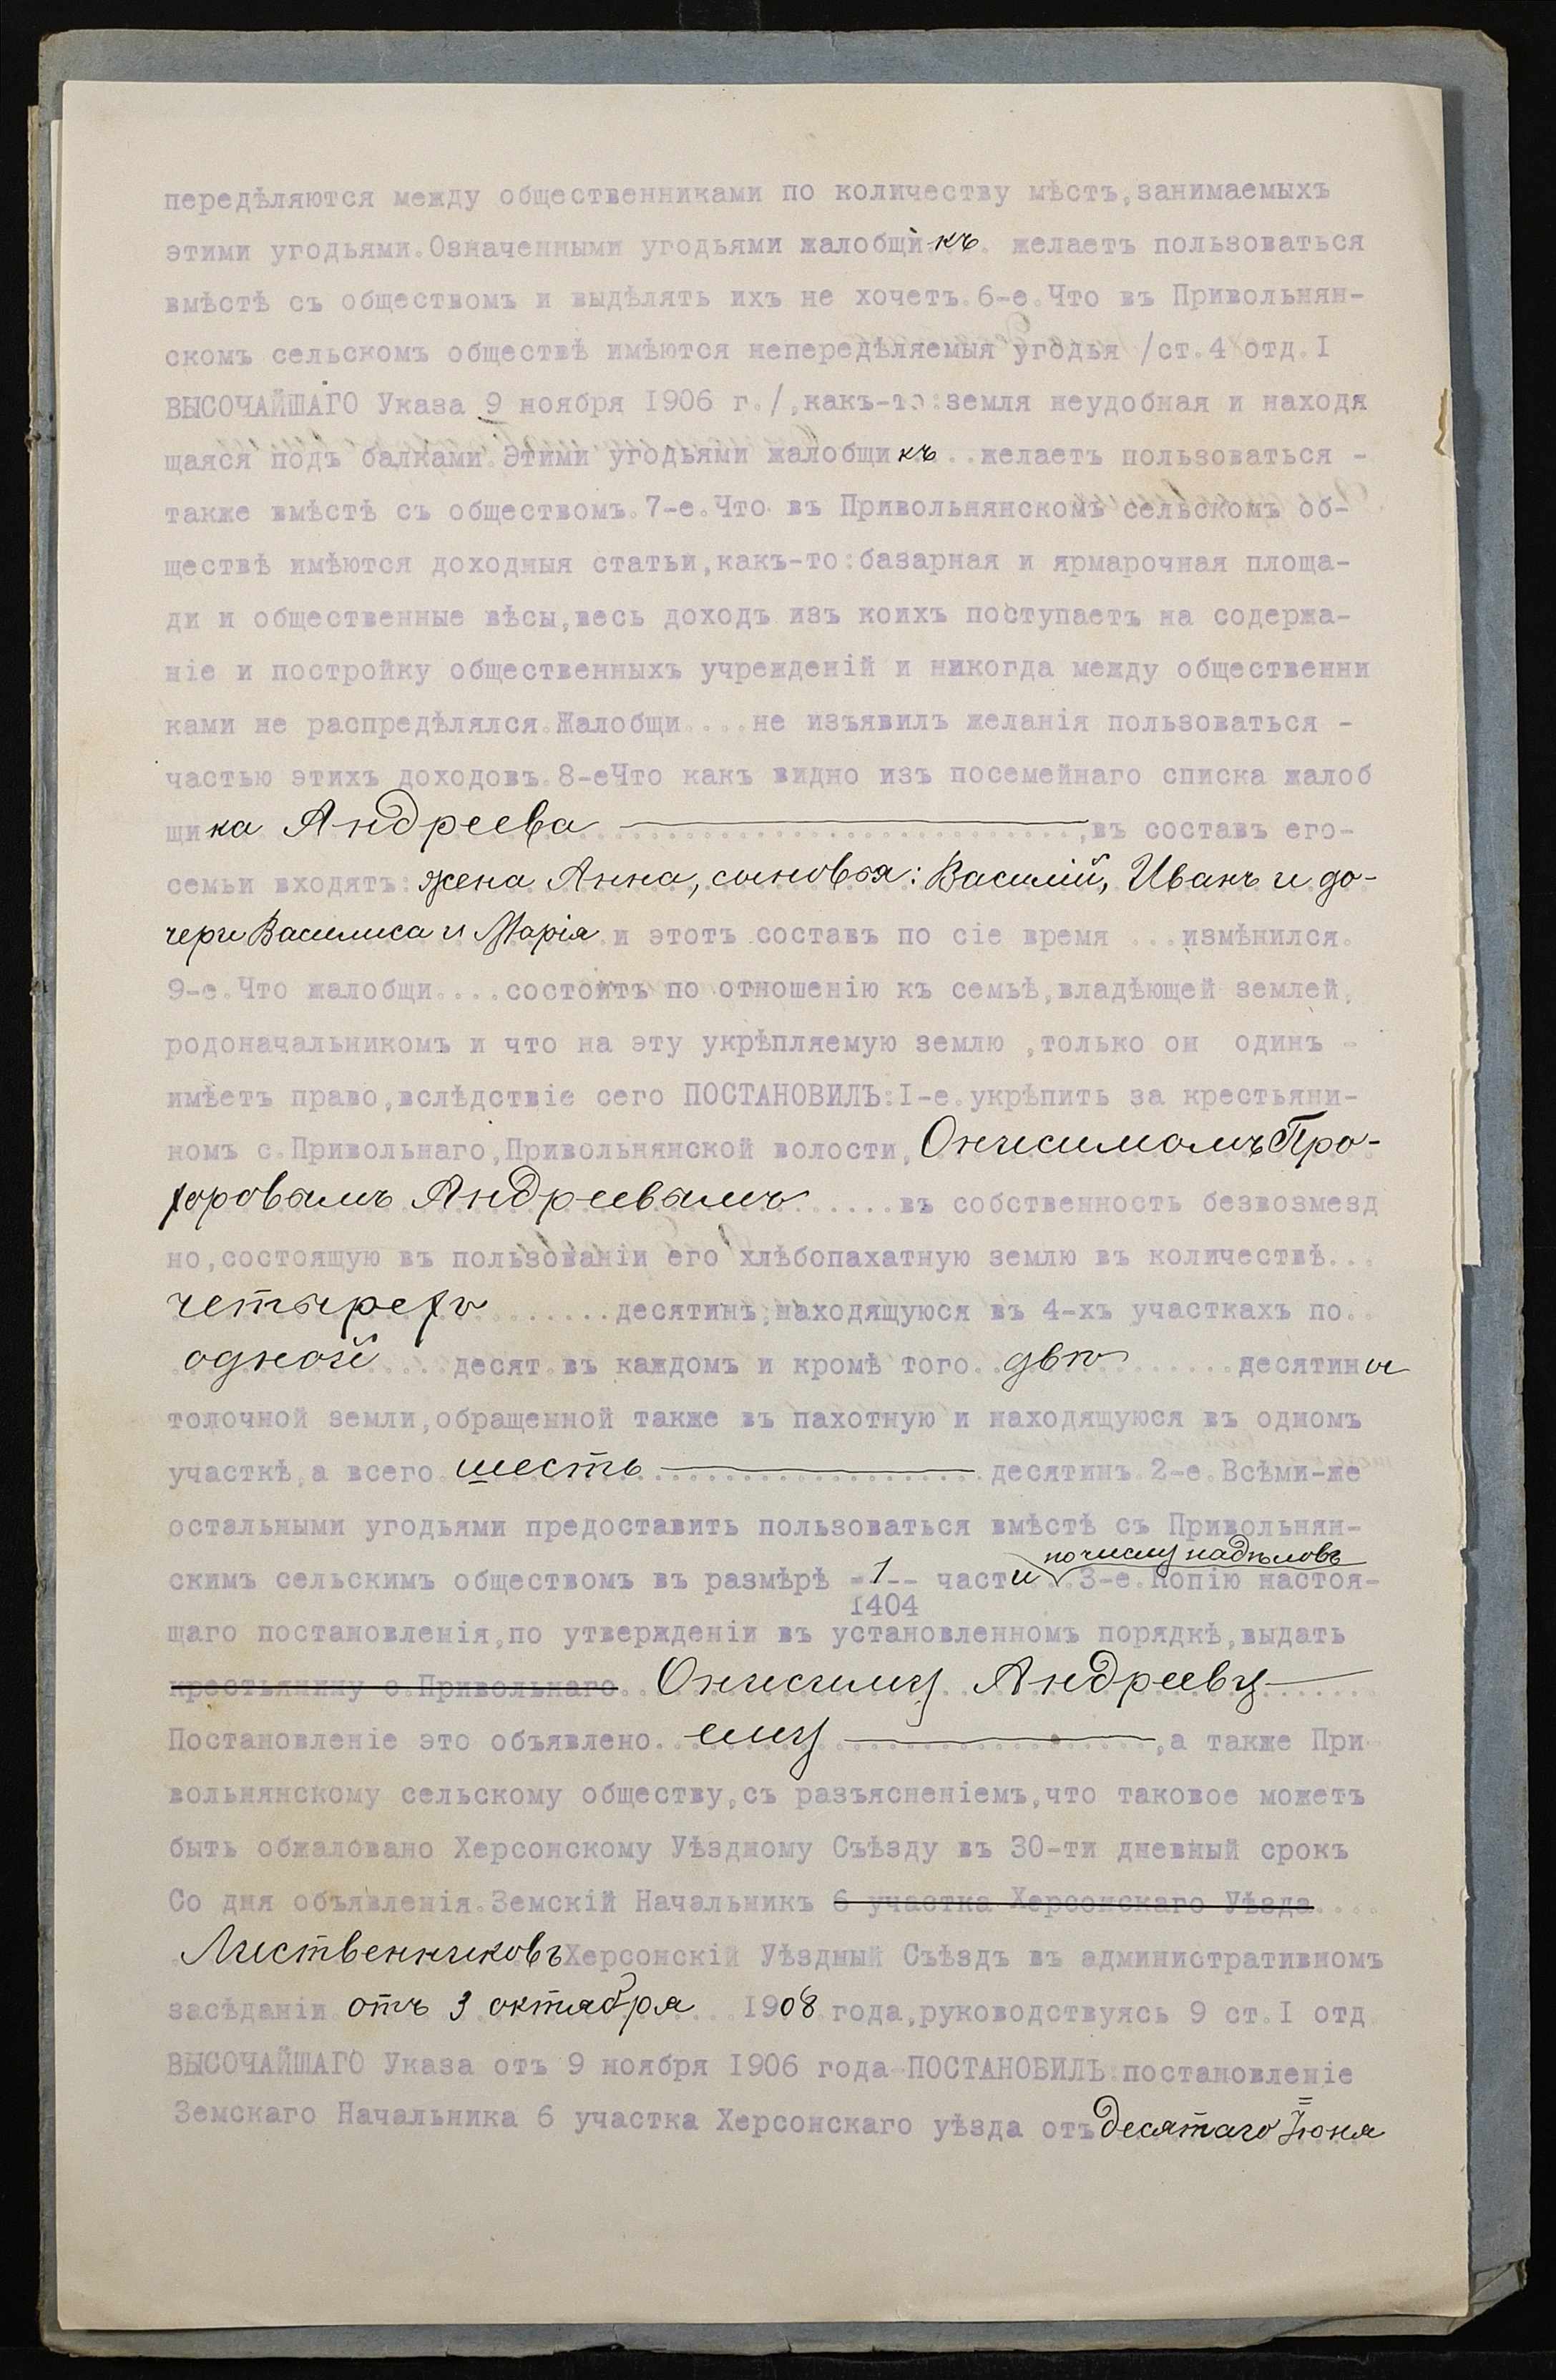 передѣляются между общественниками по количеству мѣстъ,занимаемыхъ
этими угодьями.Означенными угодьями жалобщикъ. желаетъ пользоваться
вмѣстѣ съ обществомъ и выдѣлять ихъ не хочетъ.6-е.Что въ Привольнян-
скомъ сельскомъ обществѣ имѣются непередѣляемыя угодья /ст.4 отд.I
ВЫСОЧАЙШАГО Указа 9 ноября 1906 г./,какъ-то:земля неудобная и находя
щаяся подъ балками.Этими угодьями жалобщикъ..желаетъ пользоваться -
также вмѣстѣ съ обществомъ.7-е.Что въ Привольнянскомъ сельскомъ об-
ществѣ имѣются доходныя статьи,какъ-то:базарная и ярмарочная площа-
ди и общественные вѣсы,весь доходъ изъ коихъ поступаетъ на содержа-
ніе и постройку общественныхъ учрежденій и никогда между общественни
ками не распредѣлялся.Жалобщи....не изъявилъ желанія пользоваться -
частью этихъ доходовъ.8-еЧто какъ видно изъ посемейнаго списка жалоб
щика Андреева ,въ составъ его-
семьи входятъ: жена Анна, сыновья: Василій, Иванъ и до-
чери Василиса и Марія и этотъ составъ по сіе время ...измѣнился.
9-е.Что жалобщи....состоитъ по отношенію къ семьѣ,владѣющей землей,
родоначальникомъ и что на эту укрѣпляемую землю ,только он одинъ -
имѣетъ право,вслѣдствіе сего ПОСТАНОВИЛЪ:I-е.укрѣпить за крестьяни-
номъ с.Привольнаго,Привольнянской волости, Онисимомъ Про-
хоровымъ Андреевымъ ......въ собственность безвозмезд
но,состоящую въ пользованіи его хлѣбопахатную землю въ количествѣ...
четырехъ .......десятинъ,находящуюся въ 4-хъ участкахъ по..
одной ....десят.въ каждомъ и кромѣ того..двѣ ........десятины
толочной земли,обращенной также въ пахотную и находящуюся въ одномъ
участкѣ,а всего шесть десятинъ.2-е.Всѣми-же
остальными угодьями предоставить пользоваться вмѣстѣ съ Привольнян-
по числу надѣловъ
скимъ сельскимъ обществомъ въ размѣрѣ -1-- части ..3-е.Копію настоя-
1404
щаго постановленія,по утвержденіи въ установленномъ порядкѣ,выдать
крестьянину с.Привольнаго.. Онисиму Андрееву
Постановленіе это объявлено.. ему ,а также При
вольнянскому сельскому обществу,съ разъясненіемъ,что таковое можетъ
быть обжаловано Херсонскому Уѣздному Съѣзду въ 30-ти дневный срокъ
Со дня объявленія.Земскій Начальникъ 6 участка Херсонскаго Уѣзда....
Лиственниковъ Херсонскій Уѣздный Съѣздъ въ административномъ
засѣданіи отъ 3 октября 1908 года,руководствуясь 9 ст.I отд
ВЫСОЧАЙШАГО Указа отъ 9 ноября 1906 года ПОСТАНОВИЛЪ:постановленіе
Земскаго Начальника 6 участка Херсонскаго уѣзда отъ десятаго Іюня